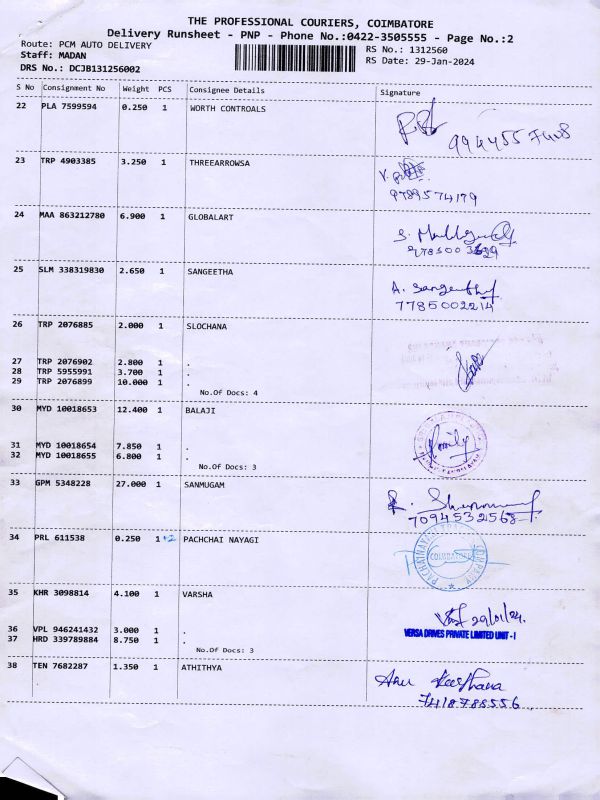 THE PROFESSIONAL COURIERS, COIMBATORE
Delivery Runsheet - PNP - Phone No.:0422-3505555 - Page No.:2
Route: PCM AUTO DELIVERY
RS No.: 1312560
Staff: MADAN
RS Date: 29-Jan-2024
DRS No.: DCJB131256002
S No Consignment No Weight PCS Consignee Details Signature
22 PLA 7599594 0.250 1 WORTH CONTROALS
23 TRP 4903385 3.250 1 THREEARROWSA
9789574179
24 MAA 863212780 6.900 1 GLOBALART
25 SLM 338319830 2.650 1 SANGEETHA
7785002214
26 TRP 2076885 2.000 1 SLOCHANA
27 TRP 2076902 2.800 1 .
28 TRP 5955991 3.700 1 .
29 TRP 2076899 10.000 1 .
No.Of Docs: 4
30 MYD 10018653 12.400 1 BALAJI
31 MYD 10018654 7.850 1 .
32 MYD 10018655 6.800 1 .
No.Of Docs: 3
33 GPM 5348228 27.000 1 SANMUGAM
7094532568
34 PRL 611538 0.250 1 +2 PACHCHAI NAYAGI
COIMBATORE
COMPANY
35 KHR 3098814 4.100 1 VARSHA
29/01/24.
36 VPL 946241432 3.000 1 .
VERSA DRIVES PRIVATE LIMITED UNIT - I
37 HRD 339789884 8.750 1 .
No.Of Docs: 3
38 TEN 7682287 1.350 1 ATHITHYA
7418788556